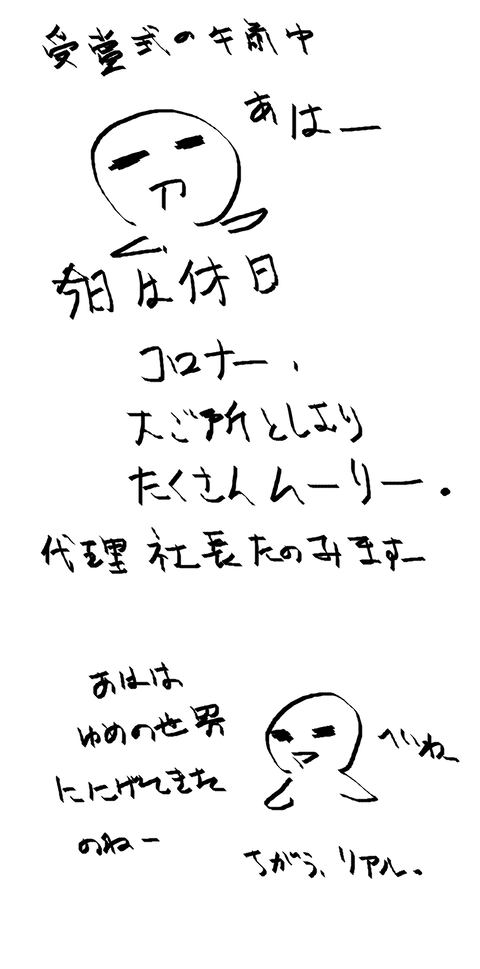 受賞式の午前中
あはー
今日は休日
コロナー、
大ご所としより
たくさんムーリー.
代理 社長たのみますー
あはは
ゆめの世界
ににげてきた
のねー
へいね
ちがう、リアル.